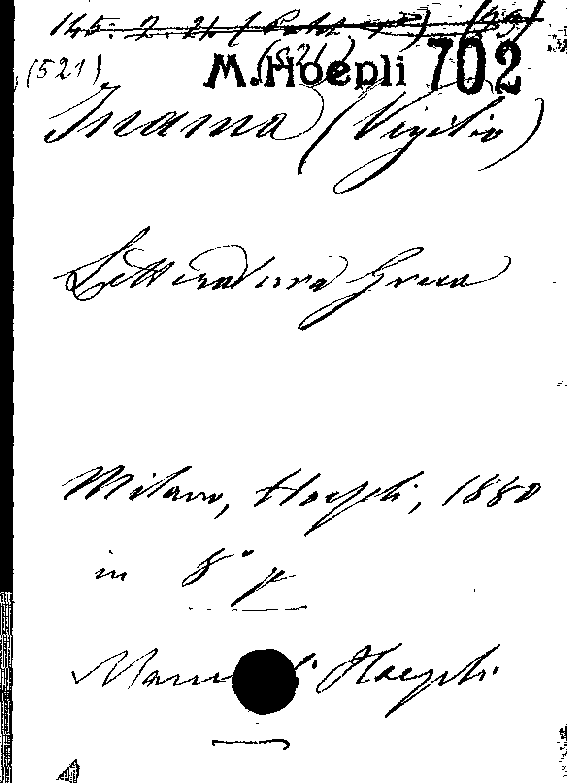 145. 2. 21
(521)
(521) M. Hoepli 702
Inama (Vigilio)
Letteratura Greca
Milano, Hoepli, 1880
in 8° p
Manuali Hoepli